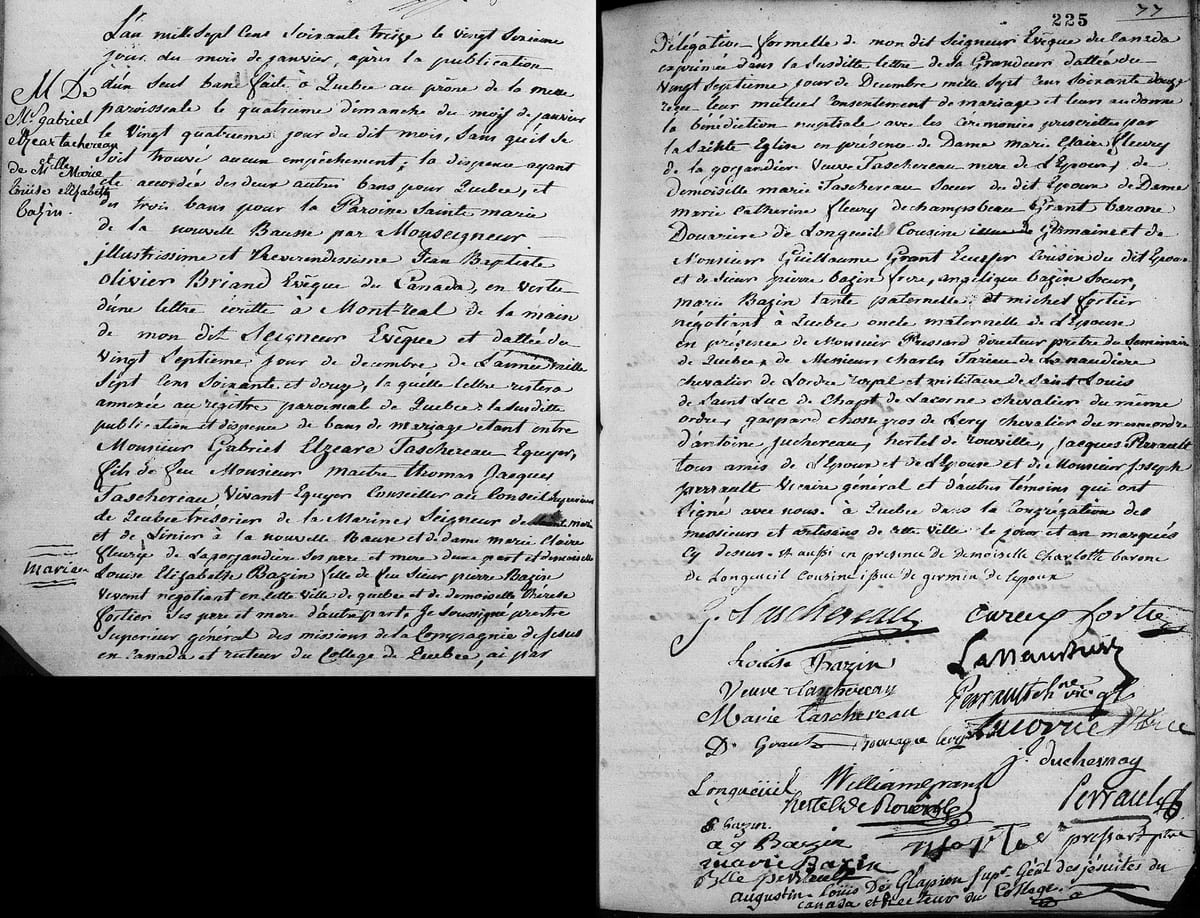 M De
Mr gabriel
elzear tachereau
de Mlle Marie
Louise elisabeth
bazin.
L'an mille sept Cens soixante treize le vingt sixieme
jour du mois de janvier, après la publication
d'un seul banc faite à Quebec au prône de la messe
paroissiale le quatrieme dimanche du mois de janvier
le vingt quatrieme jour du dit mois, sans qu'il se
soit trouvé aucun empêchement, la dispence ayant
été accordée des deux autres bans pour Quebec, et
des trois bans pour la Paroisse Sainte marie
de la nouvelle Bausse par Monseigneur
jllustrissime et Reverendissime Jean Baptiste
olivier Briand Evêque du Canada, en vertu
d'une lettre écritte à Mont-real de la main
de mon dit Seigneur Evêque et dattée du
vingt Septieme jour de decembre de l'année mille
Sept Cens Soixante et douze, la quelle lettre restera
annexée au registre paroissiale de Quebec, la susditte
publication et dispence de bans de mariage etant entre
Monsieur Gabriel Elzeare Taschereau Equyer,
fils de feu Monsieur maitre thomas Jacques
Taschereau vivant Equyer Conseiller au Conseil Superieur
de Quebec trésorier de la Marine Seigneur de Sainte marie
et de Linier à la nouvelle Bausse et de dame marie Claire
fleurie de Lagorgandiere ses pere et mere d'une part et demoiselle
Louise Elizabeth Bazin fille de feu Sieur pierre Bazin
vivant négotiant en cette ville de quebec et de demoiselle therese
fortier ses pere et mere d'autre part, Je Soussigné prestre
Superieur général des missions de la Compagnie de Jesus
en Canada et recteur du College de Quebec, ai par
mariage
225
77
Délégation formelle de mon dit Seigneur Evêque du Canada
exprimée dans la Susditte lettre de Sa Grandeur dattée du
vingt Septieme jour de Decembre mille Sept Cens Soixante douze
reçu leur mutuel Consentement de mariage et leurs ai donné
la bénédiction nuptiale avec les ceremonies prescrittes par
la Sainte Eglise en présence de Dame marie Claire fleury
de la gorgandier veuve Taschereau mere de L'Epoux, de
demoiselle marie Taschereau Soeur du dit Epoux de Dame
marie Catherine fleury dechampbeau Grant barone
Douariere de Longueil Cousine issue de Germaine et de
Monsieur Guillaume Grant Ecuyer Cousin du dit Epoux
et de Sieur pierre bazin frere, angelique bazin Soeur,
marie Bazin tante paternelle, et michel fortier
négotiant à Quebec oncle maternelle de L'Epouse
en présence de Monsieur Pressard directeur prêtre du Seminaire
de Quebec, de Monsieur Charles Tarieu de Lanaudiere
chevalier de Lordre royal et militaire de Saint Louis
de Saint Luc de Chapt de Lacorne chevalier du même
ordre, gaspard chossegros de Lery chevalier du meme ordre
d'antoine juchereau, hertel de rouville, jacques Perrault
tous amis de L'Epoux et de L'Epouse et de Monsieur Joseph
perrault vicaire général et d'autres témoins qui ont
Signé avec nous. à Quebec dans la Congregation des
messieurs et artisans de cette ville le jour et an marqués
cy dessus. et aussi en presence de demoiselle Charlotte barone
de Longueuil Cousine issuë de germin de lepoux
g. Taschereau
Louise Bazin Lanaudiere
Veuve taschereau Perrault chne vic. gl
Marie Taschereau
D. Grant
j. duchesnay
Longueüil William Grant
hertel de Rouville Perrault
P bazin.
a g Bazin pressart ptre
marie Bazin
augustin-Louis De Glapion Supr Genl des jésuites du
canada et Recteur du College.